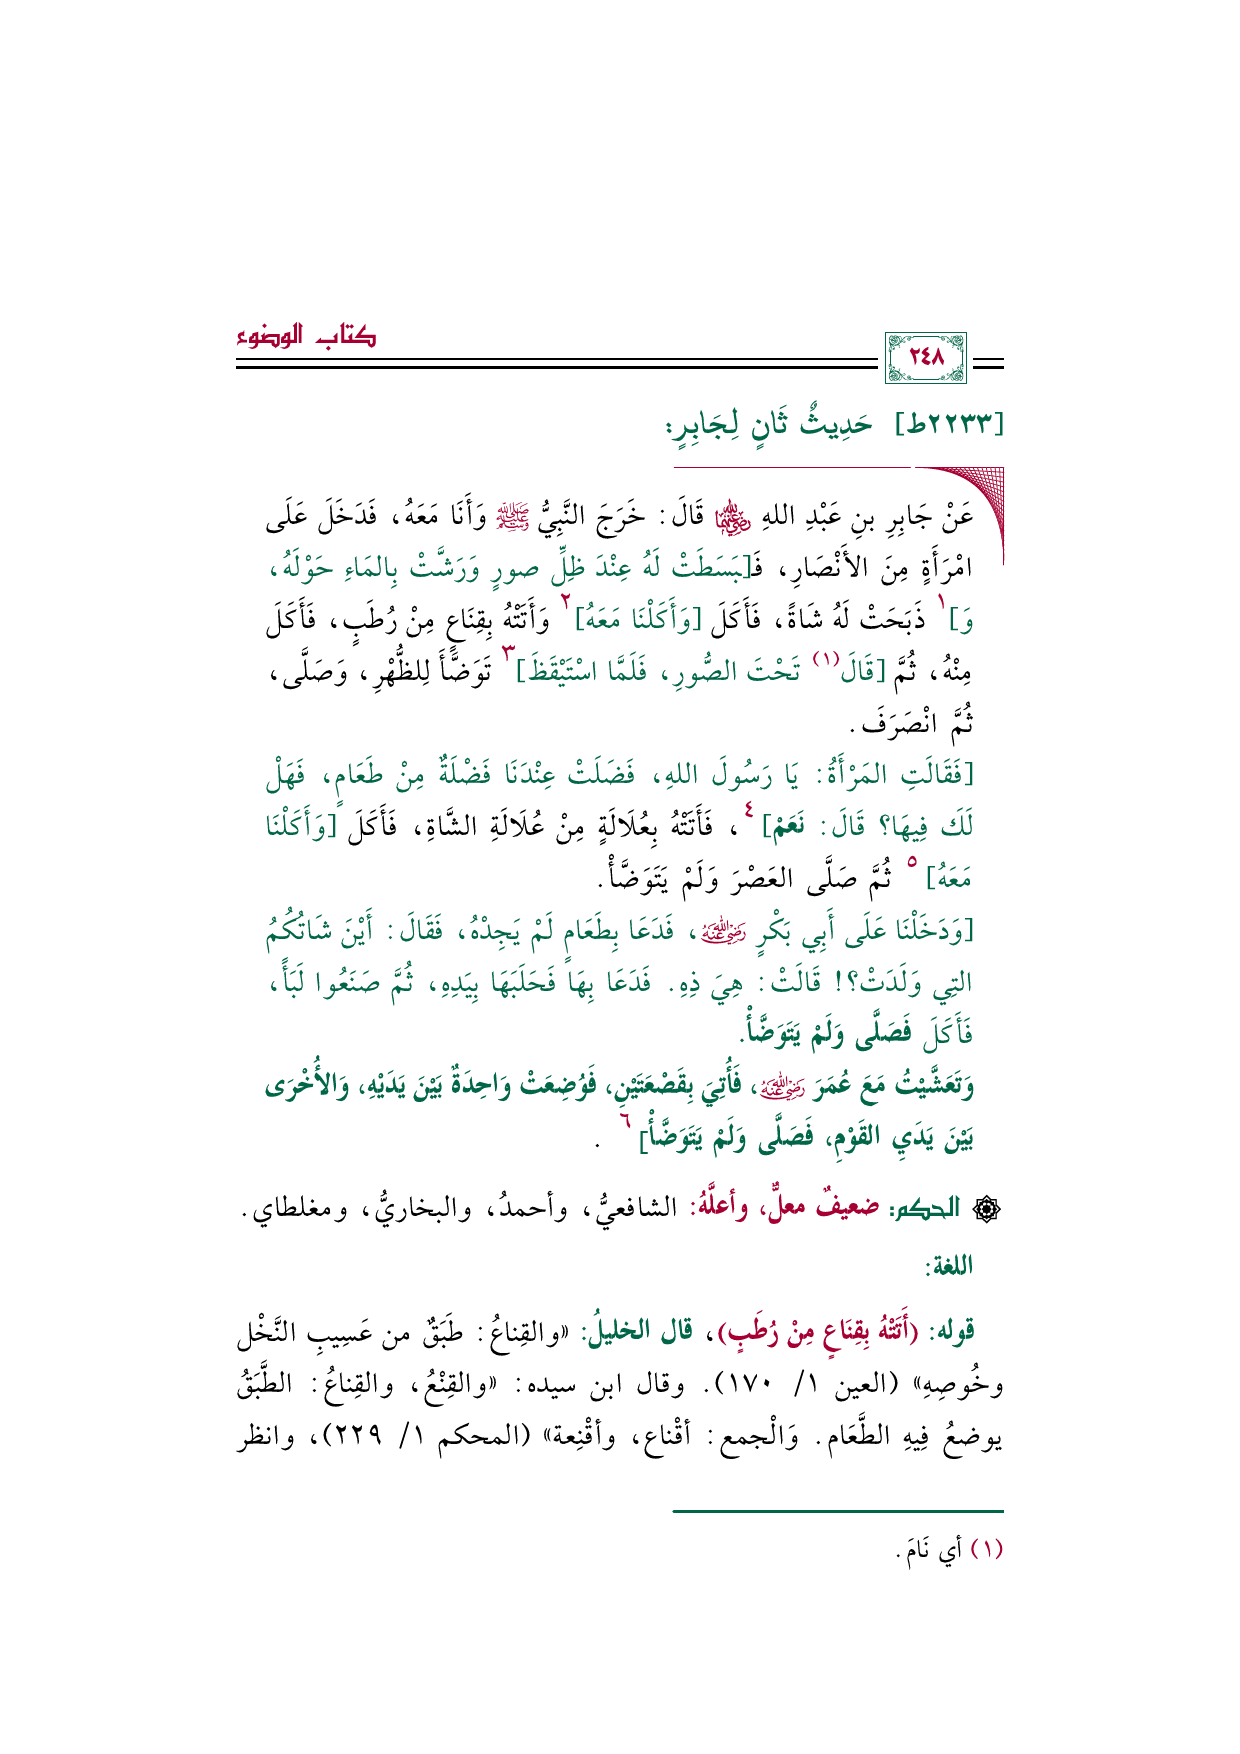 كتاب الوضوء
٢٤٨
[٢٢٣٣ط] حَدِيثٌ ثَانٍ لِجَابِرٍ:
عَنْ جَابِرِ بنِ عَبْدِ اللهِ رضي الله عنهما قَالَ: خَرَجَ النَّبِيُّ ﷺ وَأَنَا مَعَهُ، فَدَخَلَ عَلَى
امْرَأَةٍ مِنَ الأَنْصَارِ، فَـ[بَسَطَتْ لَهُ عِنْدَ ظِلِّ صورٍ وَرَشَّتْ بِالمَاءِ حَوْلَهُ،
وَ]١ ذَبَحَتْ لَهُ شَاةً، فَأَكَلَ [وَأَكَلْنَا مَعَهُ]٢ وَأَتَتْهُ بِقِنَاعٍ مِنْ رُطَبٍ، فَأَكَلَ
مِنْهُ، ثُمَّ [قَالَ(١) تَحْتَ الصُّورِ، فَلَمَّا اسْتَيْقَظَ]٣ تَوَضَّأَ لِلظُّهْرِ، وَصَلَّى،
ثُمَّ انْصَرَفَ.
[فَقَالَتِ المَرْأَةُ: يَا رَسُولَ اللهِ، فَضَلَتْ عِنْدَنَا فَضْلَةٌ مِنْ طَعَامٍ، فَهَلْ
لَكَ فِيهَا؟ قَالَ: نَعَمْ]٤، فَأَتَتْهُ بِعُلَالَةٍ مِنْ عُلَالَةِ الشَّاةِ، فَأَكَلَ [وَأَكَلْنَا
مَعَهُ]٥ ثُمَّ صَلَّى العَصْرَ وَلَمْ يَتَوَضَّأْ.
[وَدَخَلْنَا عَلَى أَبِي بَكْرٍ رضي الله عنه، فَدَعَا بِطَعَامٍ لَمْ يَجِدْهُ، فَقَالَ: أَيْنَ شَاتُكُمُ
التِي وَلَدَتْ؟! قَالَتْ: هِيَ ذِهِ. فَدَعَا بِهَا فَحَلَبَهَا بِيَدِهِ، ثُمَّ صَنَعُوا لَبَأً،
فَأَكَلَ فَصَلَّى وَلَمْ يَتَوَضَّأْ.
وَتَعَشَّيْتُ مَعَ عُمَرَ رضي الله عنه، فَأُتِيَ بِقَصْعَتَيْنِ، فَوُضِعَتْ وَاحِدَةٌ بَيْنَ يَدَيْهِ، وَالأُخْرَى
بَيْنَ يَدَيِ القَوْمِ، فَصَلَّى وَلَمْ يَتَوَضَّأْ]٦.
الحكم: ضعيفٌ معلٌّ، وأعلَّهُ: الشافعيُّ، وأحمدُ، والبخاريُّ، ومغلطاي.
اللغة:
قوله: (أَتَتْهُ بِقِنَاعٍ مِنْ رُطَبٍ)، قال الخليلُ: «والقِناعُ: طَبَقٌ من عَسِيبِ النَّخْل
وخُوصِهِ» (العين ١/ ١٧٠). وقال ابن سيده: «والقِنْعُ، والقِناعُ: الطَّبَقُ
يوضعُ فِيهِ الطَّعَام. وَالْجمع: أقْناع، وأقْنِعة» (المحكم ١/ ٢٢٩)، وانظر
(١) أي نَامَ.